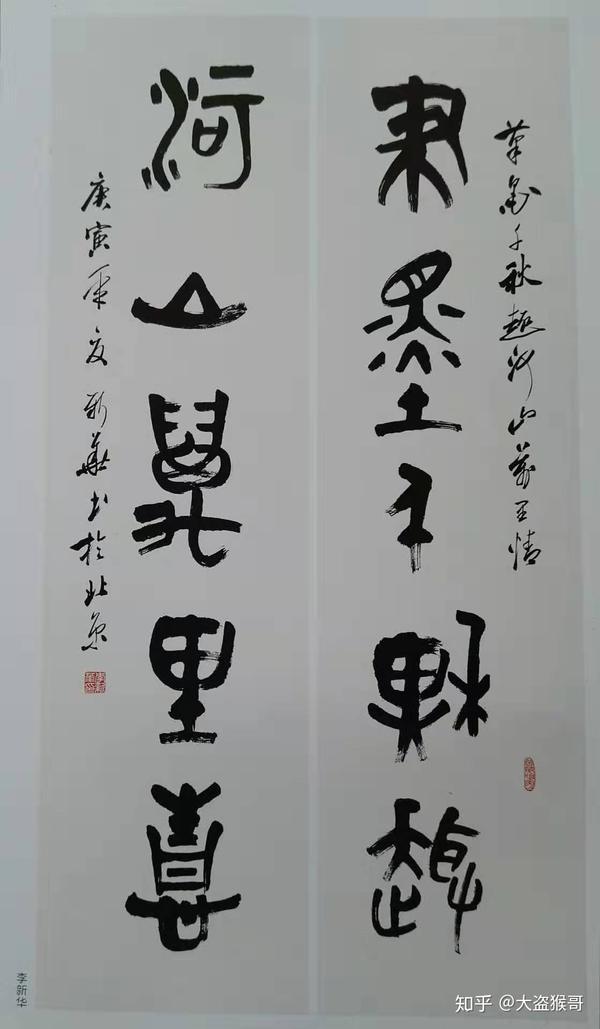 筆墨千秋趣河山萬里情
筆墨千秋趣
河山萬里情
庚寅年夏新華书於北京
李新华
知乎 @大盗猴哥